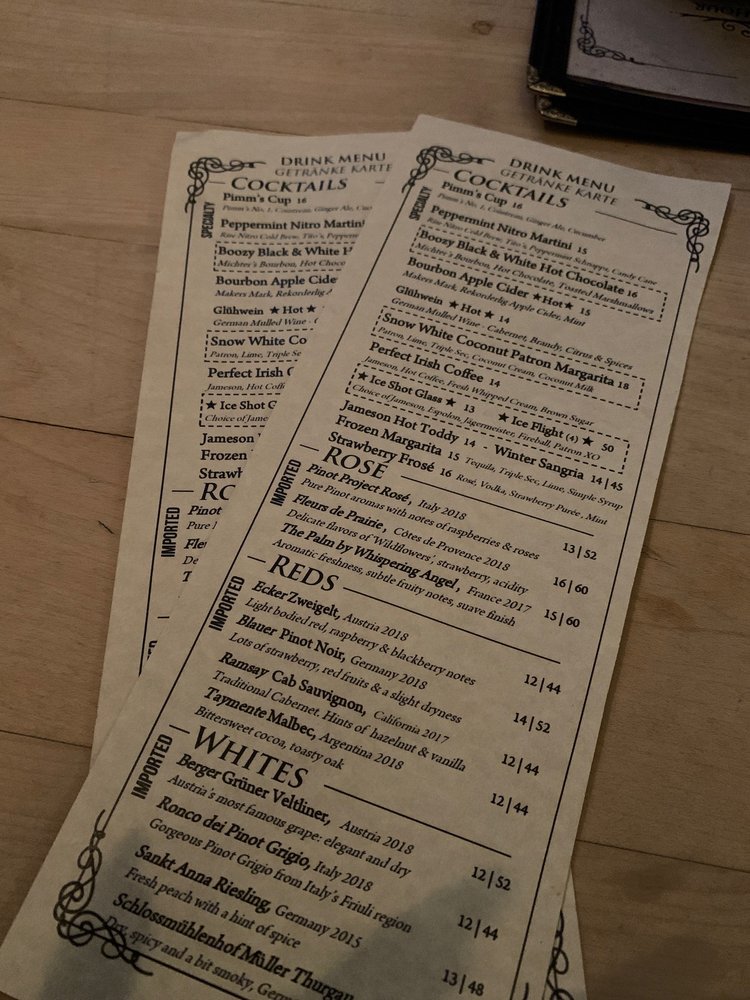 DRINK MENU
GETRÄNKE KARTE
COCKTAILS
SPECIALTY
Pimm's Cup 16
Pimm's No. 1, Cointreau, Ginger Ale, Cucumber
Peppermint Nitro Martini 15
Rise Nitro Cold Brew, Tito's, Peppermint Schnapps, Candy Cane
Boozy Black & White Hot Chocolate 16
Michter's Bourbon, Hot Chocolate, Toasted Marshmallows
Bourbon Apple Cider ★Hot★ 15
Makers Mark, Rekorderlig Apple Cider, Mint
Glühwein ★ Hot ★ 14
German Mulled Wine - Cabernet, Brandy, Citrus & Spices
Snow White Coconut Patron Margarita 18
Patron, Lime, Triple Sec, Coconut Cream, Coconut Milk
Perfect Irish Coffee 14
Jameson, Hot Coffee, Fresh Whipped Cream, Brown Sugar
★ Ice Shot Glass ★ 13 ★ Ice Flight (4) ★ 50
Choice of Jameson, Espolon, Jägermeister, Fireball, Patron XO
Jameson Hot Toddy 14 - Winter Sangria 14 | 45
Frozen Margarita 15 Tequila, Triple Sec, Lime, Simple Syrup
Strawberry Frosé 16 Rosé, Vodka, Strawberry Purée, Mint
ROSE
IMPORTED
Pinot Project Rosé, Italy 2018 13 | 52
Pure Pinot aromas with notes of raspberries & roses
Fleurs de Prairie, Côtes de Provence 2018 16 | 60
Delicate flavors of 'Wildflowers', strawberry, acidity
The Palm by Whispering Angel, France 2017 15 | 60
Aromatic freshness, subtle fruity notes, suave finish
REDS
IMPORTED
Ecker Zweigelt, Austria 2018 12 | 44
Light bodied red, raspberry & blackberry notes
Blauer Pinot Noir, Germany 2018 14 | 52
Lots of strawberry, red fruits & a slight dryness
Ramsay Cab Sauvignon, California 2017 12 | 44
Traditional Cabernet. Hints of hazelnut & vanilla
Taymente Malbec, Argentina 2018 12 | 44
Bittersweet cocoa, toasty oak
WHITES
IMPORTED
Berger Grüner Veltliner, Austria 2018 12 | 52
Austria's most famous grape: elegant and dry
Ronco dei Pinot Grigio, Italy 2018 12 | 44
Gorgeous Pinot Grigio from Italy's Friuli region
Sankt Anna Riesling, Germany 2015 13 | 48
Fresh peach with a hint of spice
Schlossmühlenhof Müller Thurgau
Dry, spicy and a bit smoky,
DRINK MENU
GETRÄNKE KARTE
COCKTAILS
SPECIALTY
Pimm's Cup 16
Pimm's No. 1, Cointreau, Ginger Ale,
Peppermint Nitro Martini
Rise Nitro Cold Brew, Tito's,
Boozy Black & White
Michter's Bourbon, Hot
Bourbon Apple
Makers Mark, Rekorderlig
Glühwein ★ Hot ★
German Mulled Wine -
Snow White
Patron, Lime, Triple
Perfect Irish
Jameson, Hot
★ Ice Shot
Choice of
Jameson
Frozen
IMPORTED
Pinot
Pure